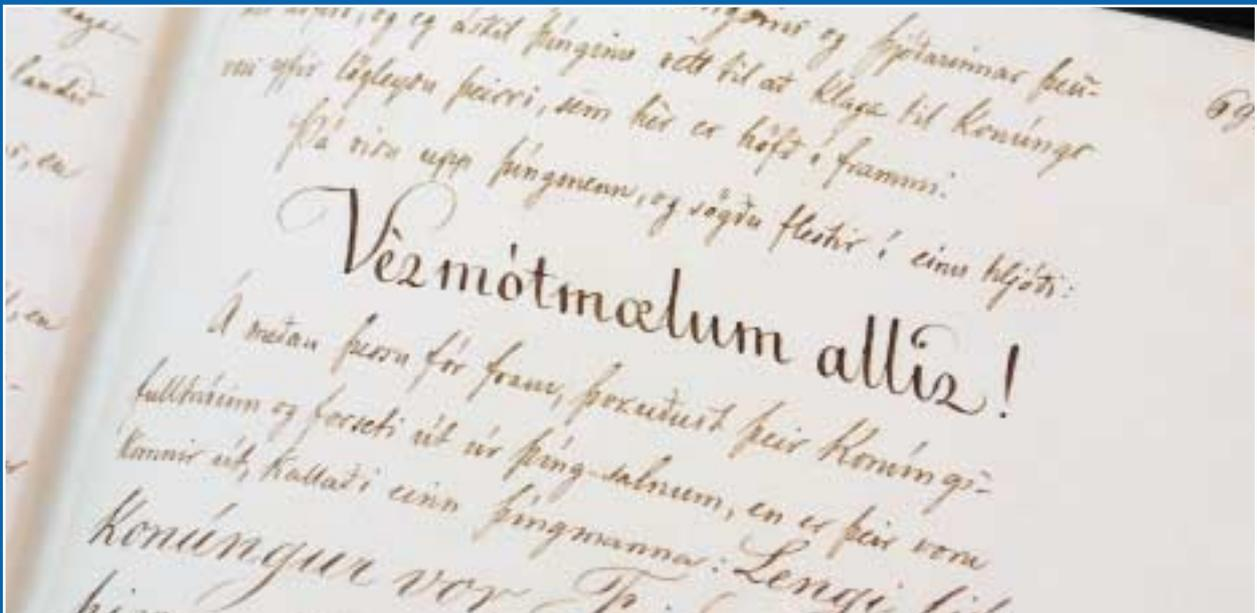 og þjóðarinnar þeu-
69.
og eg áskil þinginu rétt til að klaga til Konúngs
yfir lögleysu þeirri, sem hèr er höfð í frammi.
Þá risu upp þingmenn, og sögðu flestir í einu hljóði:
Vèr mótmælum allir!
Á meðan þessu fór fram, þokuðust þeir Konúngs-
fulltrúinn og forseti út úr þíng-salnum, en er þeir voru
komnir út, kallaði einn þíngmanna: Lengi
Konúngur vor
landið
en
en